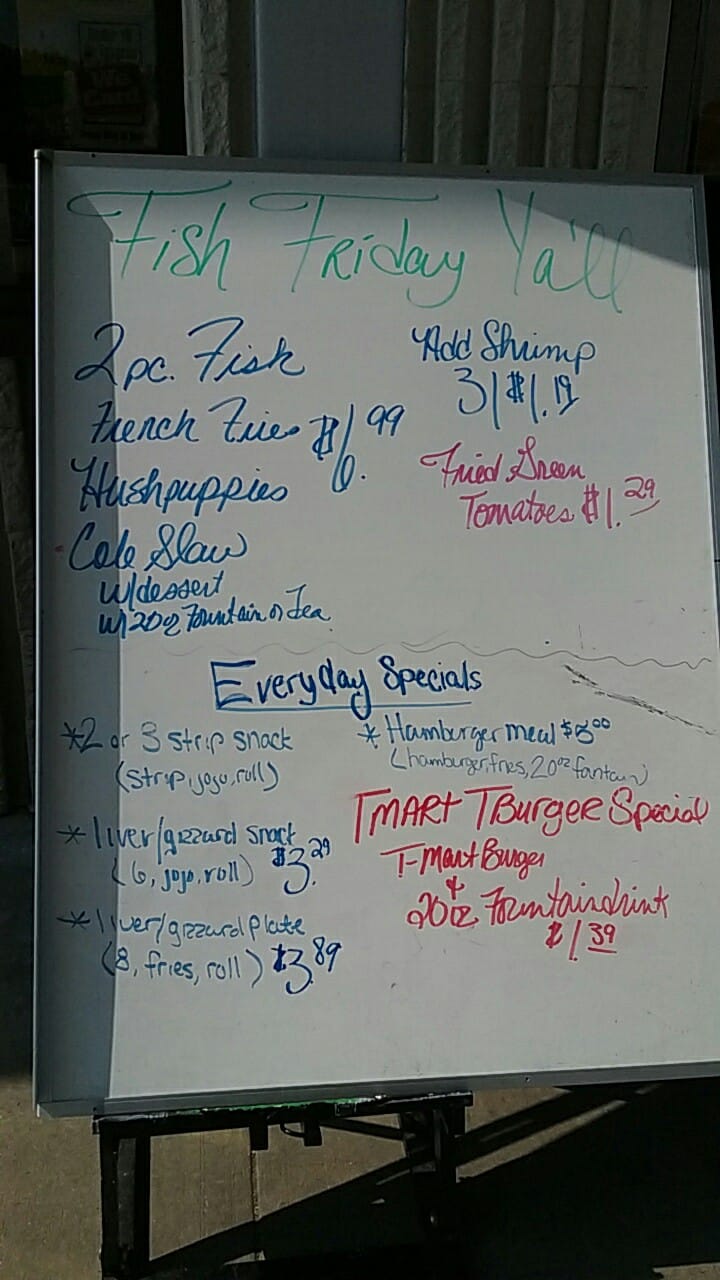 Fish Friday Ya'll
2pc. Fish
French Fries $6.99
Hushpuppies
Cole Slaw
w/dessert
w/20oz Fountain or Tea
Add Shrimp
3/$1.19
Fried Green
Tomatoes $1.29
Everyday Specials
*2 or 3 strip snack
(strip, jojo, roll)
* liver/gizzard snack
(6, jojo, roll) $3.29
* liver/gizzard plate
(8, fries, roll) $3.89
* Hamburger meal $5.00
(hamburger, fries, 20oz fontain)
TMART TBurger Special
T-Mart Burger
&
20oz Fountain drink
$1.39